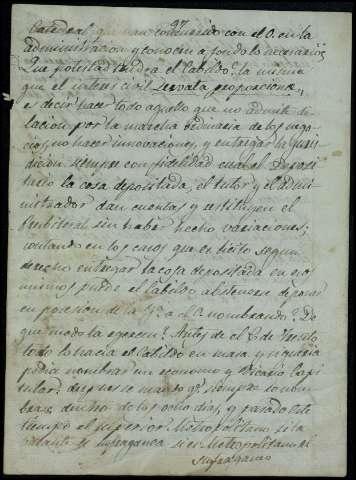 Catedral, que han concurrido con el O. en la
administracion y conocen a fondo lo necesario.
Que potestad tendrá el Cabildo? la misma
que el interes civil servata proporcione,
es decir hacer todo aquello que no admite di-
lacion por la marcha ordinaria de los nego-
cios, no hacer innovaciones, y entregar la juris-
diccion siempre con fidelidad cual el Deposi-
tario la cosa depositada, el tutor y el admi-
nistrador dan cuentas y restituyen el
sin haber hecho variaciones;
en los casos que es licito segun
derecho entregar la cosa depositada en
puede el Cabildo abstenerse de poner
en posesion de la Yª a el O. nombrando? De
que modo la egerce? Antes del C. de Trento
todo lo hacia el Cabildo en masa y ni queria
podia nombrar un economo y Vicario Capi-
tular: despues se mando qe siempre lo nom-
brase dentro de los ocho dias, y pasado este
tiempo el superior: Metropolitano si la
vacante es sufraganea si es Metropolitana el
Sufraganeo